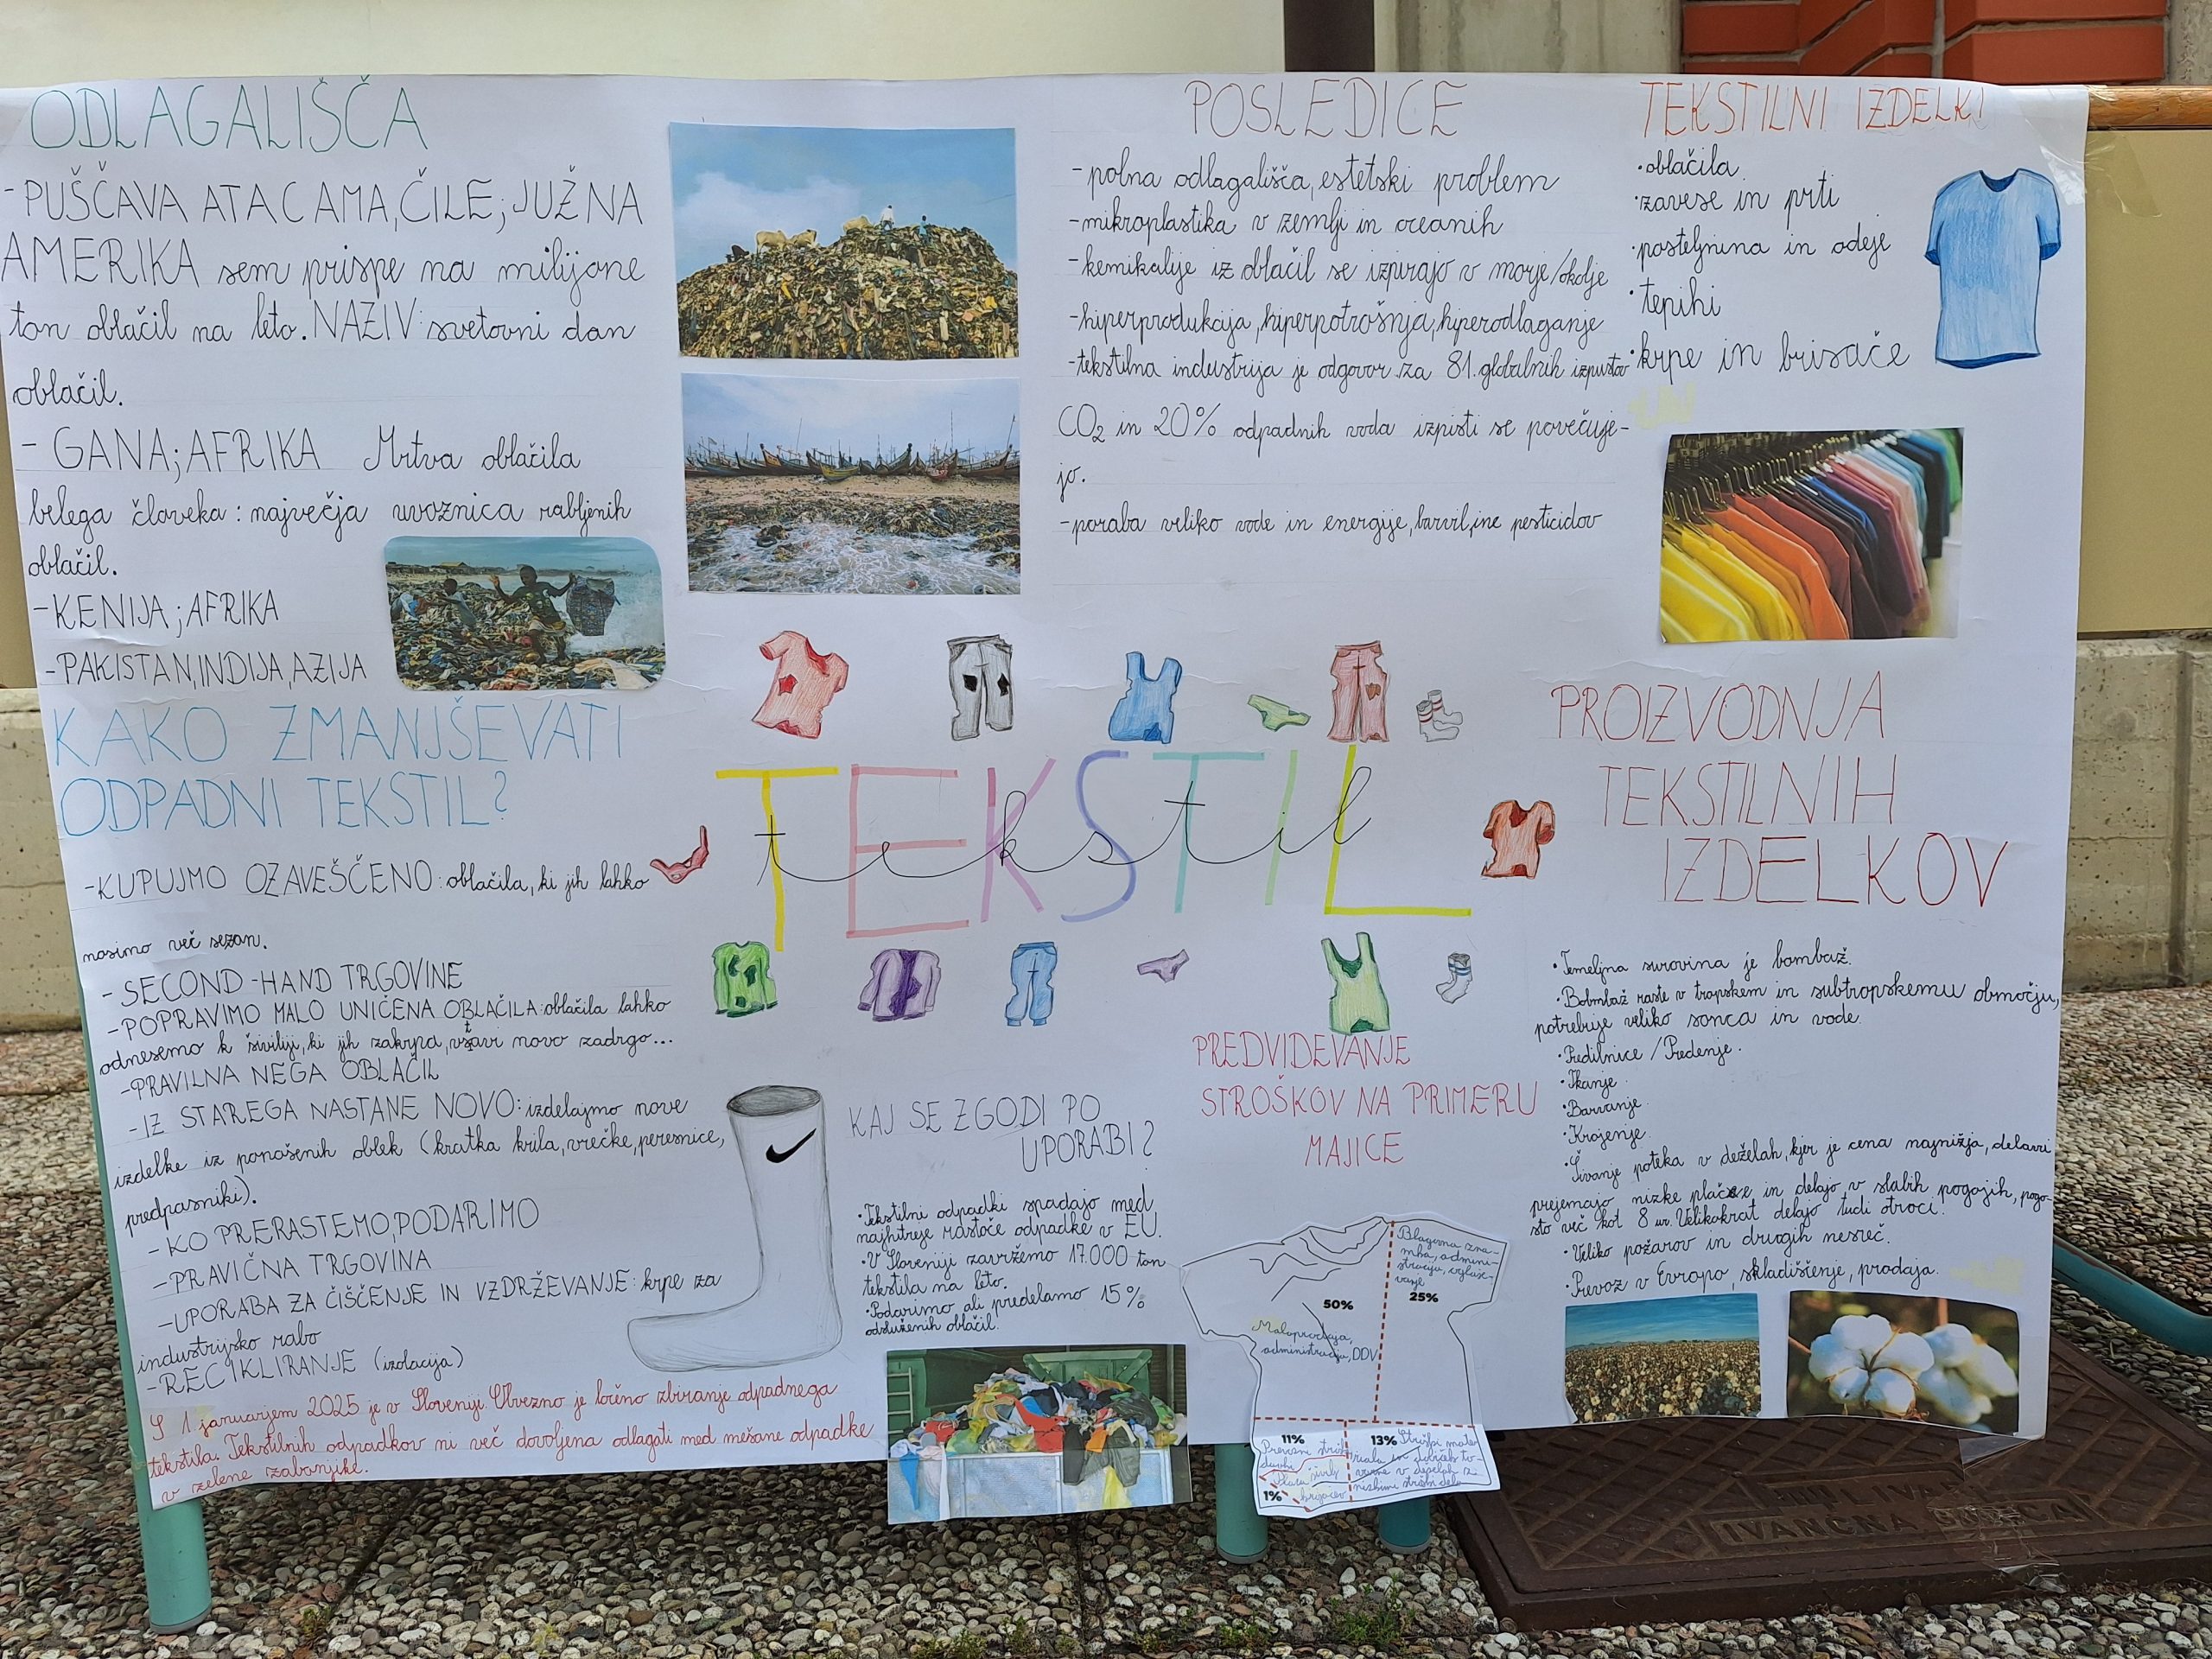 ODLAGALIŠČA
-PUŠČAVA ATACAMA, ČILE; JUŽNA
AMERIKA sem prispe na milijone
ton oblačil na leto. NAZIV: svetovni dan
oblačil.
- GANA; AFRIKA Mrtva oblačila
belega človeka: največja uvoznica rabljenih
oblačil.
-KENIJA; AFRIKA
-PAKISTAN, INDIJA, AZIJA
KAKO ZMANJŠEVATI
ODPADNI TEKSTIL?
-KUPUJMO OZAVEŠČENO: oblačila, ki jih lahko
nosimo več sezon.
- SECOND-HAND TRGOVINE
-POPRAVIMO MALO UNIČENA OBLAČILA: oblačila lahko
odnesemo k šivilji, ki jih zakrpa, vstavi novo zadrgo...
-PRAVILNA NEGA OBLAČIL
-IZ STAREGA NASTANE NOVO: izdelajmo nove
izdelke iz ponošenih oblek (kratka krila, vrečke, peresnice,
predpasniki).
-KO PRERASTEMO, PODARIMO
-PRAVIČNA TRGOVINA
-UPORABA ZA ČIŠČENJE IN VZDRŽEVANJE: krpe za
industrijsko rabo
-RECIKLIRANJE (izolacija)
S 1. januarjem 2025 je v Sloveniji Obvezno je ločeno zbiranje odpadnega
tekstila. Tekstilnih odpadkov ni več dovoljena odlagati med mešane odpadke
v zelene zabojnike.
POSLEDICE
-polna odlagališča, estetski problem
-mikroplastika v zemlji in oceanih
-kemikalije iz oblačil se izpirajo v morje/okolje
-hiperprodukcija, hiperpotrošnja, hiperodlaganje
-tekstilna industrija je odgovor. za 81. globalnih izpustov
CO2 in 20% odpadnih voda izpisti se povečuje-
jo.
-poraba veliko vode in energije, barvil, inc pesticidov
TEKSTIL
tekstil
KAJ SE ZGODI PO
UPORABI?
•Tekstilni odpadki spadajo med
najhitreje rastoče odpadke v EU.
•V Sloveniji zavržemo 17.000 ton
tekstila na leto.
•Podarimo ali predelamo 15%
odsluženih oblačil.
PREDVIDEVANJE
STROŠKOV NA PRIMERU
MAJICE
Blagovna zna-
mka, admini-
stracija, oglaše-
vanje
25%
50%
Maloprodaja,
administracija, DDV
11%
Prevozni stroški
13% Stroški mate-
riala in dobiček to-
varne v deželah z
nizkimi stroški dela
Plača šivilj
1%
TEKSTILNI IZDELKI
•oblačila
•zavese in prti
•posteljnina in odeje
•tepihi
•krpe in brisače
PROIZVODNJA
TEKSTILNIH
IZDELKOV
•Temeljna surovina je bombaž.
•Bolmbaž raste v tropskem in subtropskemu območju,
potrebuje veliko sonca in vode.
•Predilnice / Predenje.
•Tkanje.
•Barvanje.
•Krojenje.
•Šivanje poteka v deželah, kjer je cena najnižja, delavci
prejemajo nizke plače in delajo v slabih pogojih, pogo-
sto več kot 8 ur. Velikokrat delajo tudi otroci.
•Veliko požarov in drugih nesreč.
•Prevoz v Evropo, skladiščenje, prodaja.
LIV
IVANČNA GORICA